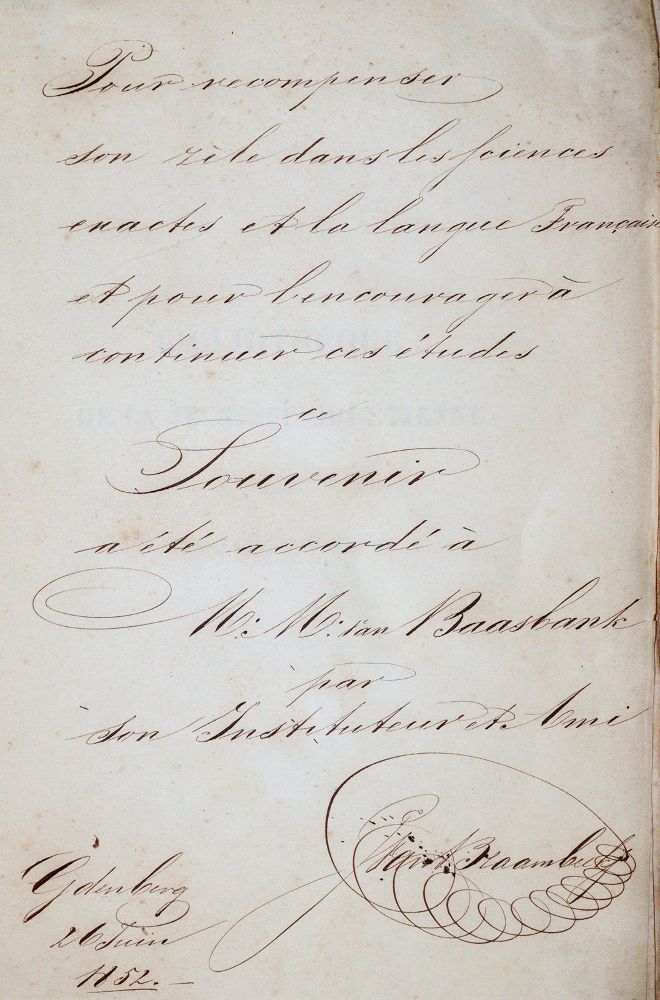 Pour recompenser
son zèle dans les sciences
exactes et la langue Française
et pour l'encourager à
continuer ces études
ce
Souvenir
a été accordé à
M: van Baasbank
par
son Instituteur et Ami
26 Juin
1852.